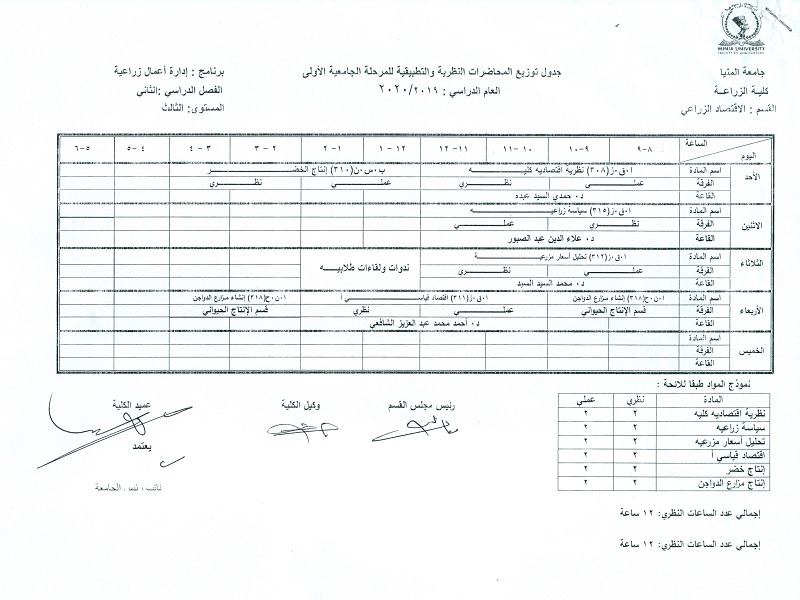 MINIA UNIVERSITY
FACULTY OF AGRICULTURE
جامعة المنيا
كلية الزراعة
القسم : الاقتصاد الزراعي
جدول توزيع المحاضرات النظرية والتطبيقية للمرحلة الجامعية الأولى
العام الدراسي : ٢٠٢٠/٢٠١٩
برنامج : إدارة أعمال زراعية
الفصل الدراسي :الثاني
المستوى: الثالث
الساعة
اليوم
٨-٩ ٩-١٠ ١٠-١١ ١١-١٢ ١٢-١ ١-٢ ٢-٣ ٣-٤ ٤-٥ ٥-٦
الأحد اسم المادة ا.ق.ز(٣٠٨) نظرية اقتصاديه كليه ب.س.ن(٣١٠) إنتاج الخضر
الفرقة عملي نظري عملي نظري
القاعة د. حمدي السيد عبده
الاثنين اسم المادة ا.ق.ز(٣١٥) سياسة زراعيه
الفرقة نظري عملي
القاعة د. علاء الدين عبد الصبور
الثلاثاء اسم المادة ا.ق.ز(٣١٢) تحليل أسعار مزرعية ندوات ولقاءات طلابيه
الفرقة عملي نظري
القاعة د. محمد السيد السيد
الأربعاء اسم المادة ا.ن.ح(٣١٨) إنشاء مزارع الدواجن ا.ق.ز(٣١١) اقتصاد قياسي أ ا.ن.ح(٣١٨) إنشاء مزارع الدواجن
الفرقة قسم الإنتاج الحيواني عملي نظري قسم الإنتاج الحيواني
القاعة د. أحمد محمد عبد العزيز الشافعي
الخميس اسم المادة
الفرقة
القاعة
نموذج المواد طبقا للائحة :
المادة نظري عملي
نظرية اقتصاديه كليه ٢ ٢
سياسة زراعيه ٢ ٢
تحليل أسعار مزرعيه ٢ ٢
اقتصاد قياسي أ ٢ ٢
إنتاج خضر ٢ ٢
إنتاج مزارع الدواجن ٢ ٢
رئيس مجلس القسم
وكيل الكلية
عميد الكلية
يعتمد
نائب رئيس الجامعة
إجمالي عدد الساعات النظري: ١٢ ساعة
إجمالي عدد الساعات النظري: ١٢ ساعة